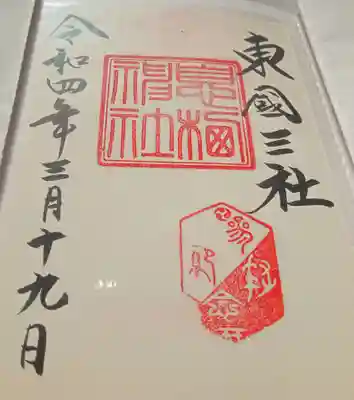 東國三社
息栖神社
令和四年三月十九日